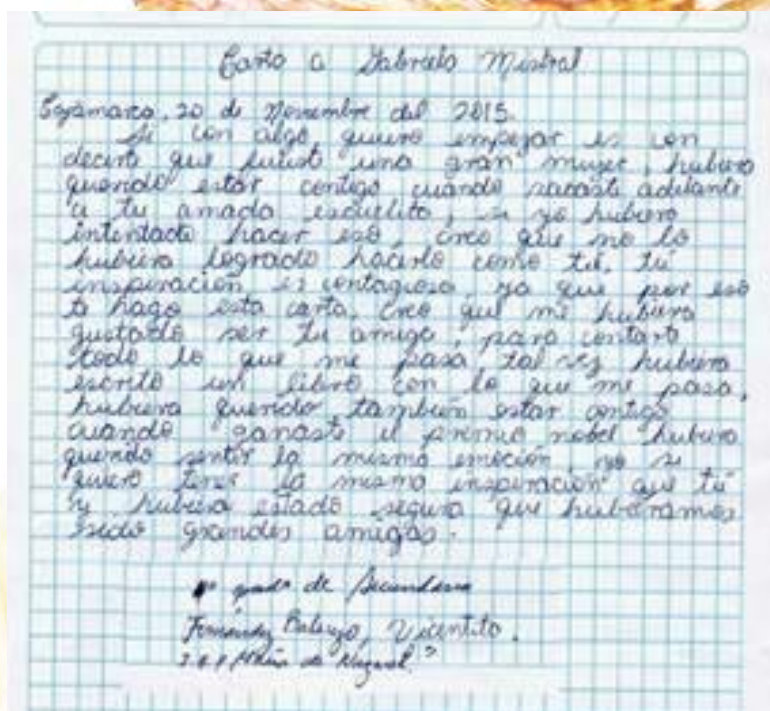 Carta a Gabriela Mistral
Cajamarca, 20 de Noviembre del 2015.
Si con algo quiero empezar es con
decirte que fuiste una gran mujer, hubiera
querido estar contigo cuándo sacaste adelante
a tu amada escuelita, si yo hubiera
intentado hacer eso, creo que no lo
hubiera logrado hacerlo como tú, tú
inspiración es contagiosa ya que por eso
te hago esta carta. Creo que me hubiera
gustado ser tu amiga, para contarte
todo lo que me pasa tal vez hubiera
escrito un libro con lo que me pasa,
hubiera querido también estar contigo
cuando ganaste el premio nobel hubiera
querido sentir la misma emoción, yo si
quiero tener la misma inspiración que tú
y hubiera estado segura que hubiéramos
sido grandes amigas.
grado de Secundaria
Fernández, Vicentito.